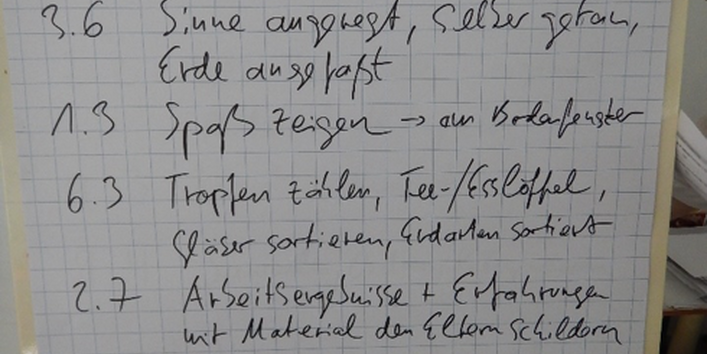 3.6 Sinne angeregt, Selber getan,
Erde angefaßt
1.3 Spaß zeigen → am Bodenfenster
6.3 Tropfen zählen, Tee-/Esslöffel,
Gläser sortieren, Erdarten sortiert
2.7 Arbeitsergebnisse + Erfahrungen
mit Material den Eltern schildern